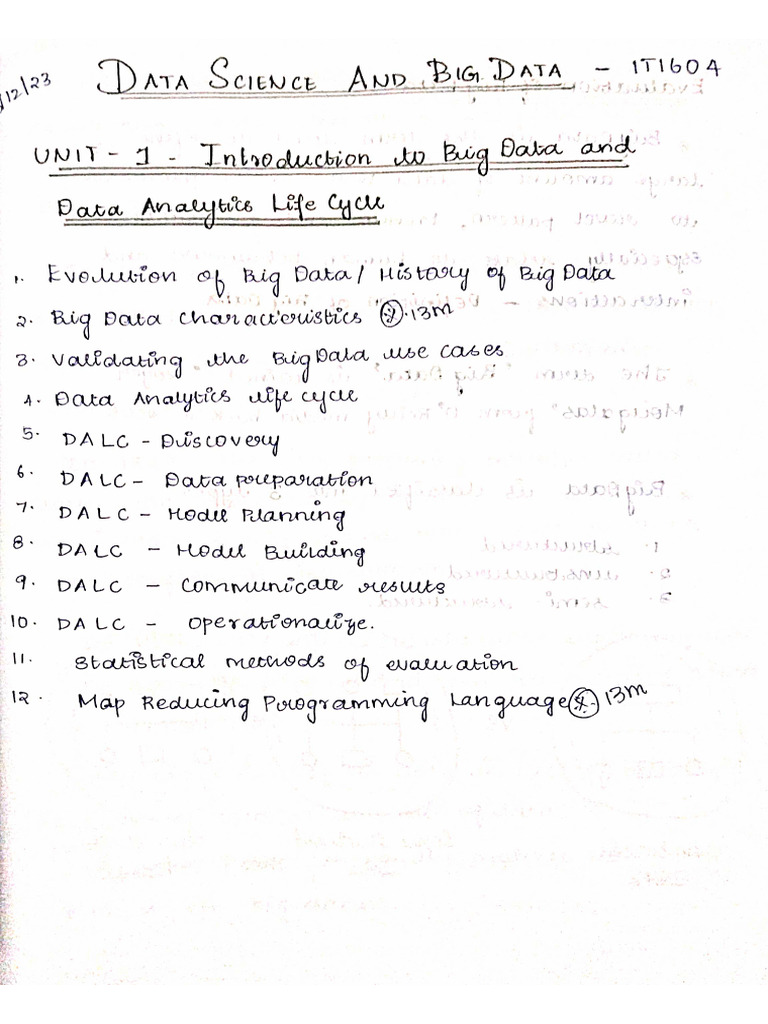 /12/23
DATA SCIENCE AND BIG DATA - IT1604
UNIT - 1 - Introduction to Big Data and
Data Analytics Life Cycle
1. Evolution of Big Data / History of Big Data
2. Big Data characteristics 13m
3. Validating the Big Data use cases
4. Data Analytics life cycle
5. DALC - Discovery
6. DALC - Data preparation
7. DALC - Model Planning
8. DALC - Model Building
9. DALC - Communicate results
10. DALC - Operationalize.
11. Statistical methods of evaluation
12. Map Reducing Programming Language 13m